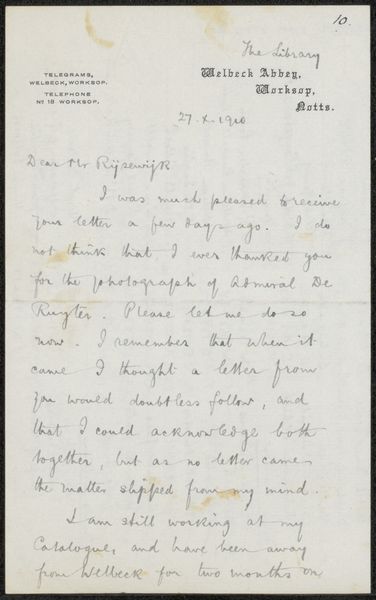 10.
TELEGRAMS,
WELBECK, WORKSOP.
TELEPHONE
No 18 WORKSOP.
The Library
Welbeck Abbey,
Worksop,
Notts.
27. X. 1910
Dear Mr Rijsewijk
I was much pleased to receive
your letter a few days ago. I do
not think that I ever thanked you
for the photograph of Admiral De
Ruyter. Please let me do so
now. I remember that when it
came I thought a letter from
you would doubtless follow, and
that I could acknowledge both
together, but as no letter came
the matter slipped from my mind.
I am still working at my
Catalogue, and have been away
from Welbeck for two months on